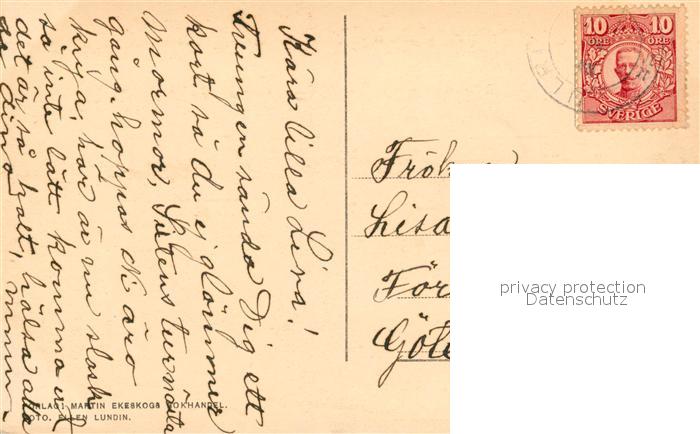 Kära lilla Lisa!
Tvungen sända Dig ett
kort så du ej glömmer
Mormor, Sutens turnäta
gång. hoppas Ni äro
krya, här är nu slask
så inte lätt komma ut
det är så halt, hälsa alla
de dina
Mormor
10 10
ÖRE ÖRE
SVERIGE
Frök
Lisa
För
Göte
privacy protection
Datenschutz
FÖRLAG: MARTIN EKESKOGS BOKHANDEL.
FOTO. ELLEN LUNDIN.